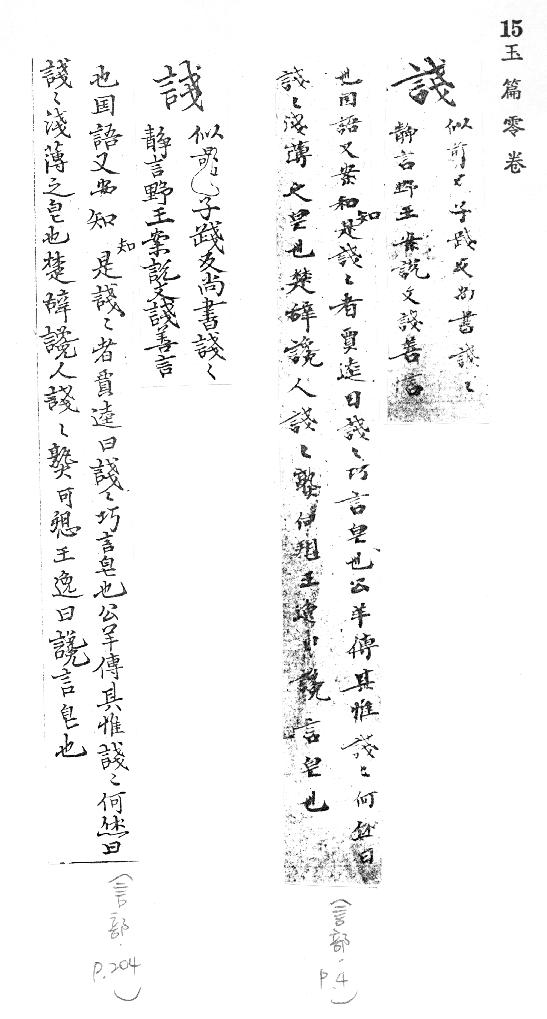 15玉篇零卷
諓
似剪七子踐反尚書諓〻
静言野王案說文諓善言
也国語又案和是諓〻者賈逵曰諓〻巧言皃也公羊傳其惟諓〻何然曰
知
諓〻浅薄之皃也楚辞讒人諓〻孰
王逸曰讒言皃也
(言部.P.4)
諓
似
子踐反尚書諓〻
静言野王案說文諓善言
也国語又安知是諓〻者賈逵曰諓〻巧言皃也公羊傳其惟諓〻何然曰
知
諓〻浅薄之皂也楚辞讒人諓〻
可愬王逸曰讒言皂也
(言部.P.204)